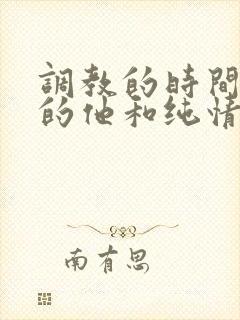 調教的時間
的他和纯情
南有思